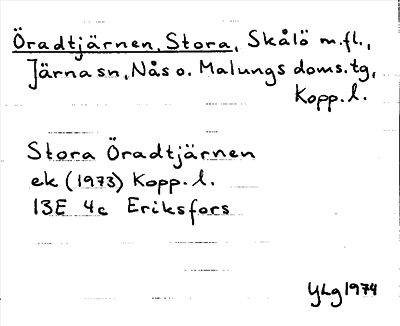 Öradtjärnen, Stora, Skålö m.fl.,
Järna sn, Nås o. Malungs doms.tg,
Kopp. l.
Stora Öradtjärnen
ek (1973) Kopp. l.
13E 4c Eriksfors
YLg 1974